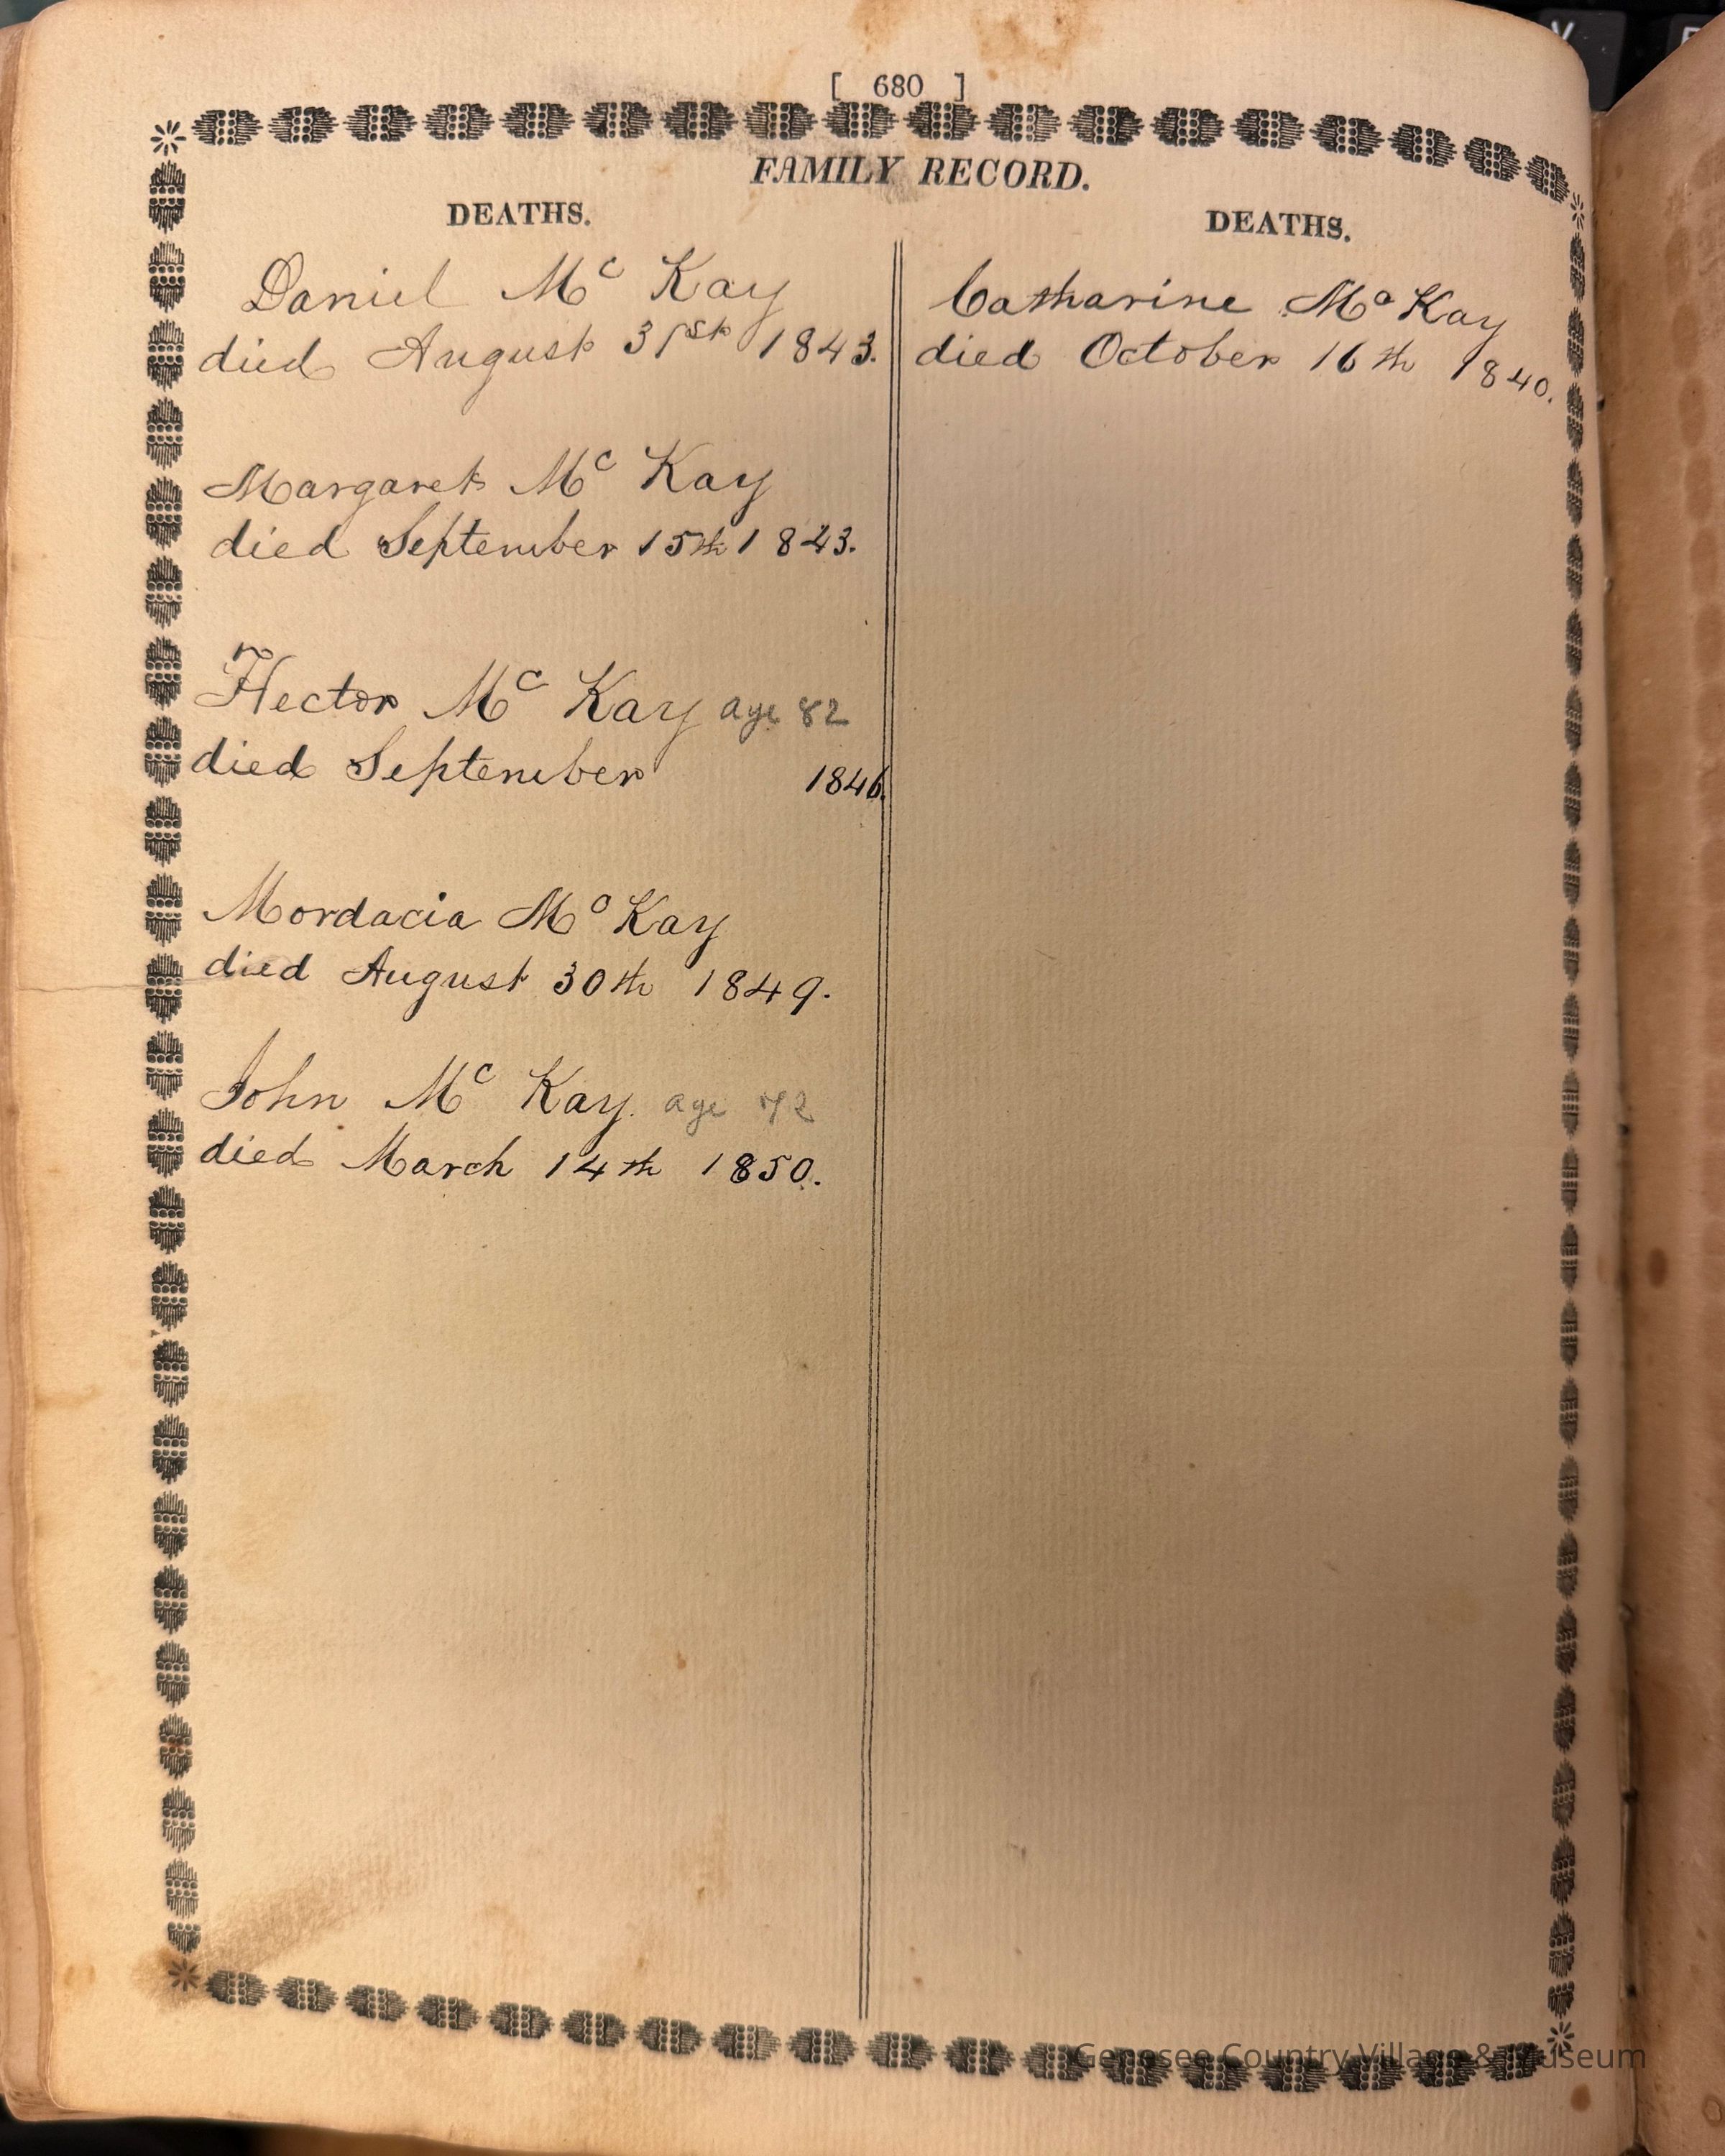 [ 680 ]
FAMILY RECORD.
DEATHS.
Daniel Mc Kay
died August 31st 1843.
Margaret Mc Kay
died September 15th 1843.
Hector Mc Kay age 82
died September 1846.
Mordacia Mc Kay
died August 30th 1849.
John Mc Kay. age 72
died March 14th 1850.
DEATHS.
Catharine Mc Kay
died October 16th 1840.
Genesee Country Village & Museum